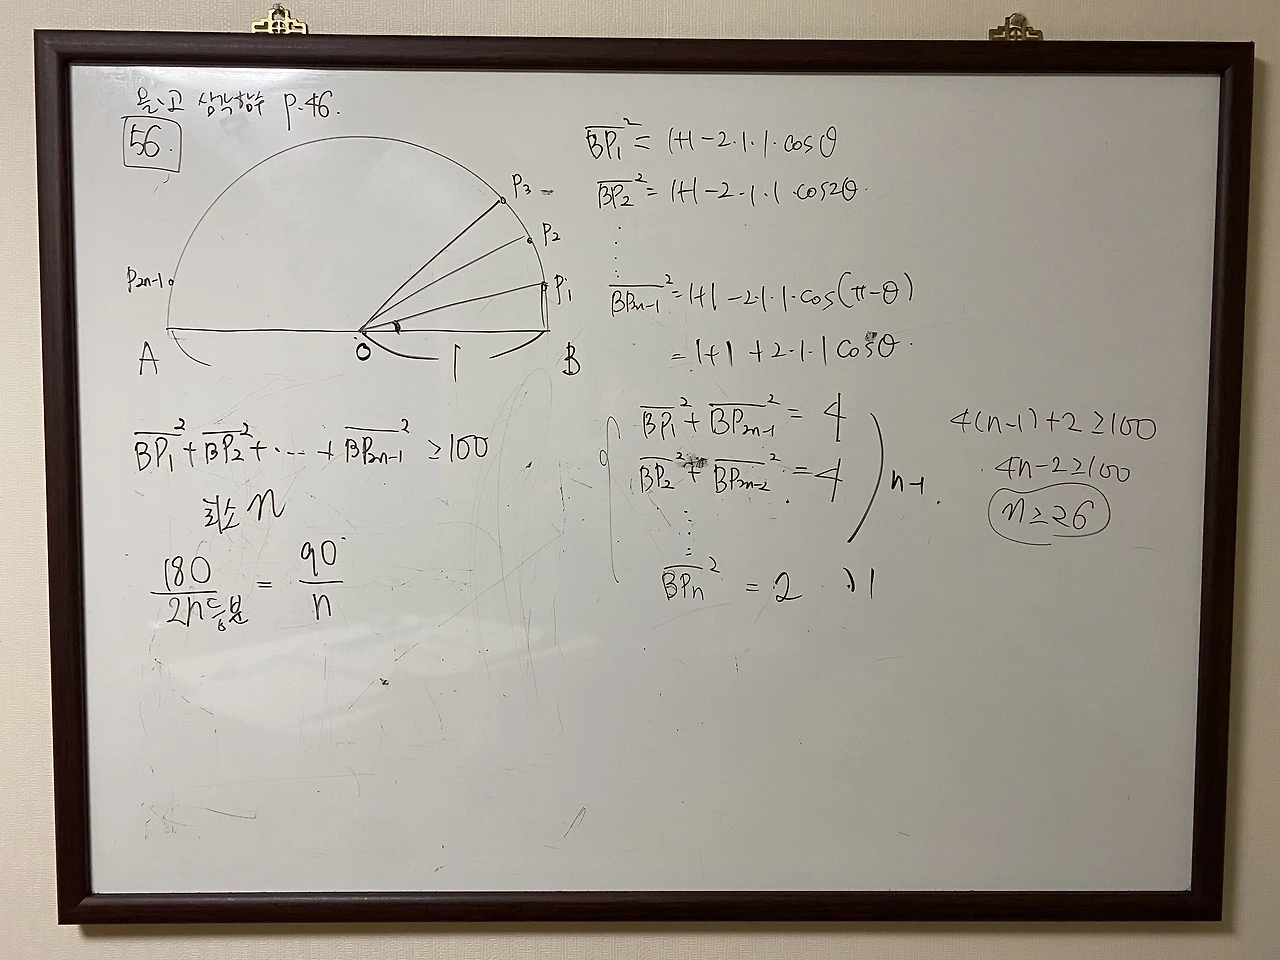 올고 삼각함수 P.46.
56.
P3
P2
P1
P2n-1
A
O
1
B
BP1² + BP2² + ··· + BP2n-1² ≥ 100
최소 n
180/2n등분 = 90°/n
BP1² = 1+1-2·1·1·cosθ
BP2² = 1+1-2·1·1·cos2θ.
⋮
BP2n-1² = 1+1-2·1·1·cos(π-θ)
= 1+1+2·1·1cosθ.
BP1² + BP2n-1² = 4
BP2² + BP2n-2² = 4
n-1.
⋮
BPn² = 2 )1
4(n-1)+2≥100
4n-2≥100
n≥26